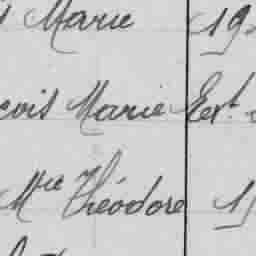 Marie 19
cois Marie Ext.
Mie Théodore 1